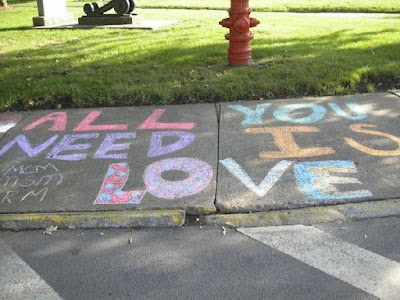 ALL YOU
NEED IS
LOVE
MCM